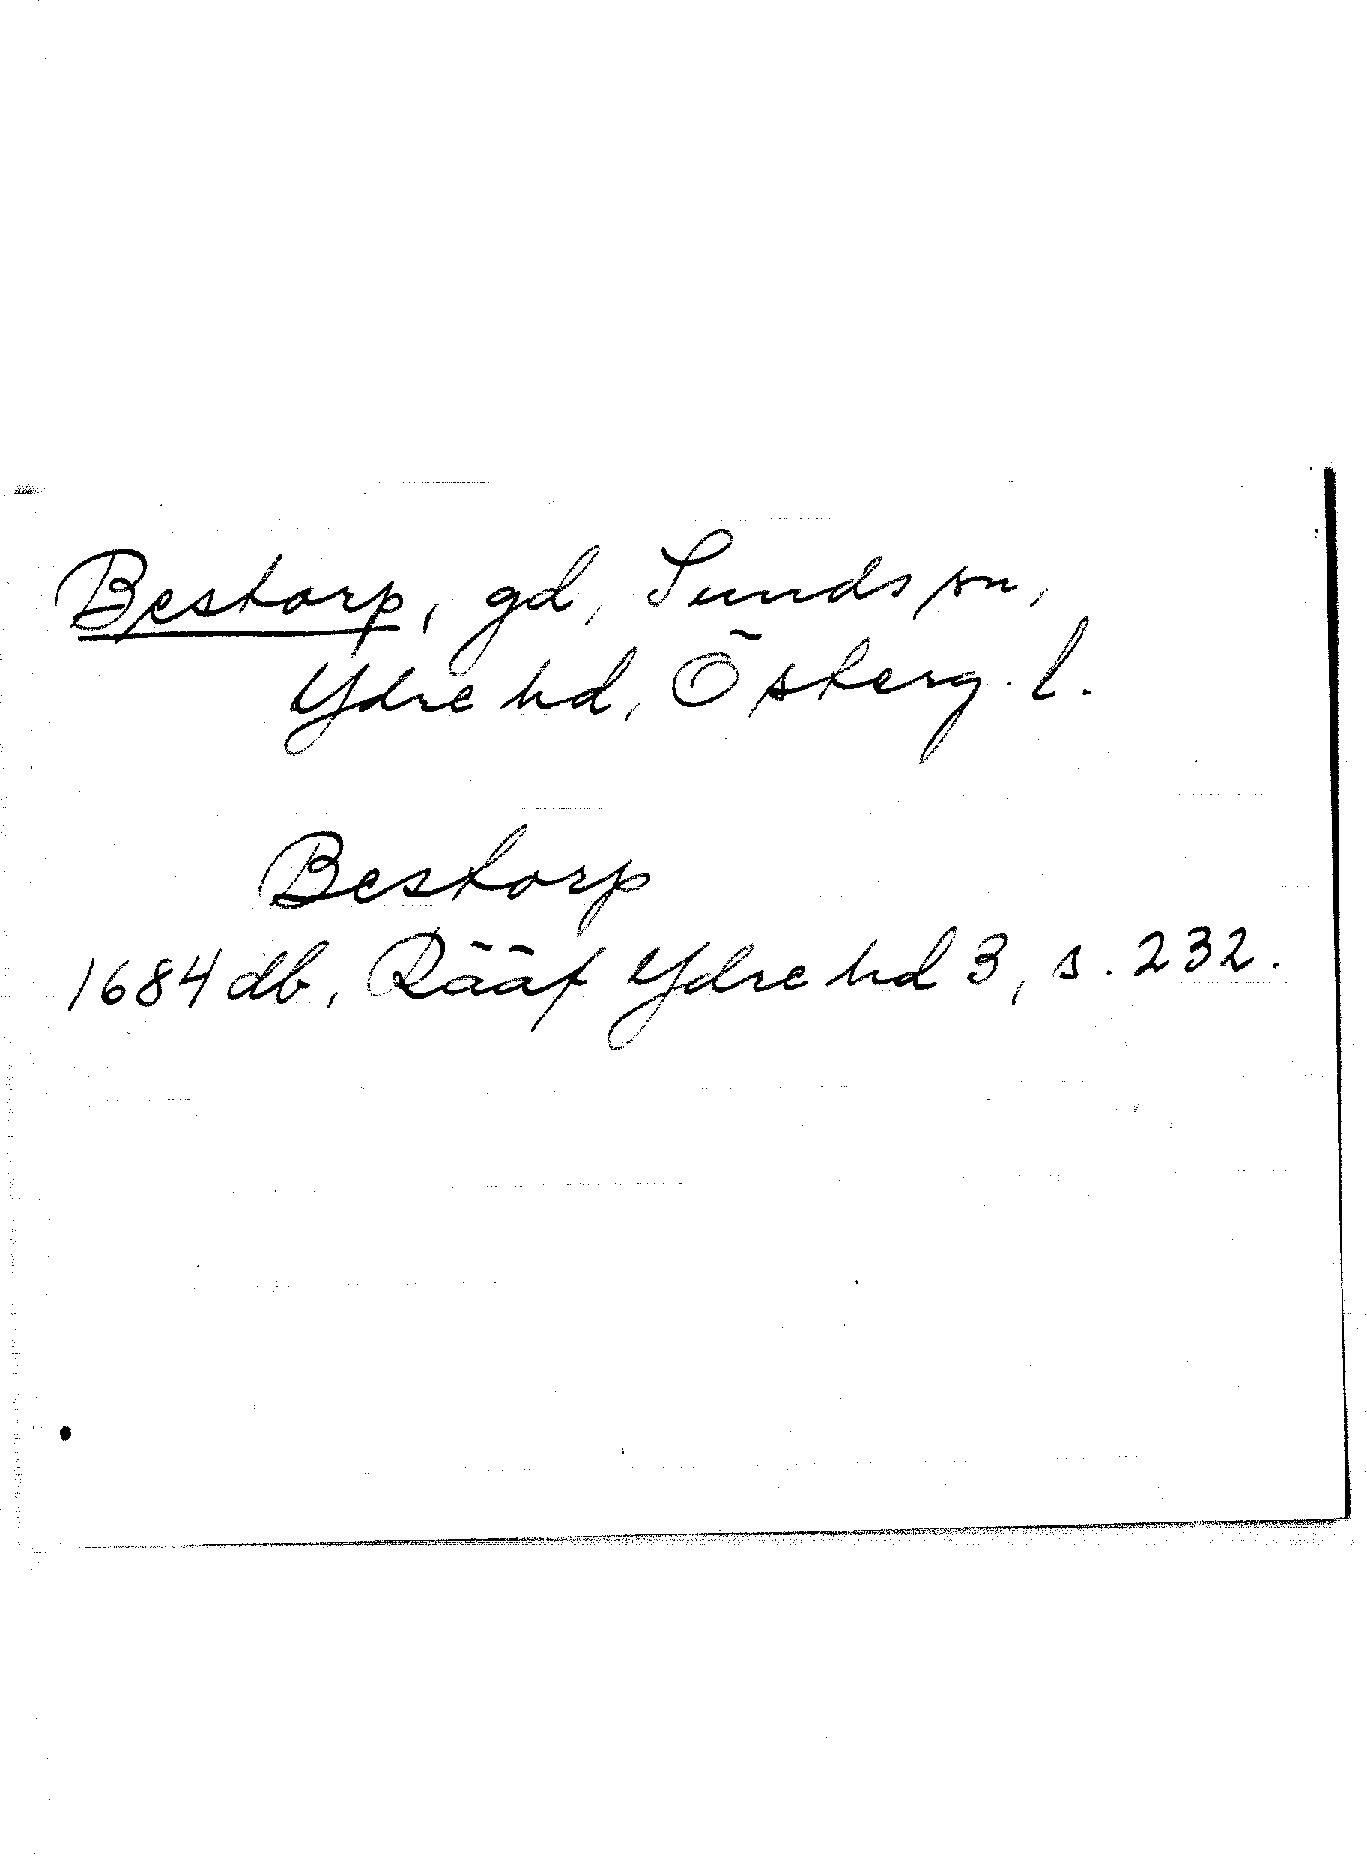 Bestorp, gd, Sunds sn,
Ydre hd, Österg. l.
Bestorp
1684 db, Rääf Ydre hd 3, s. 232.